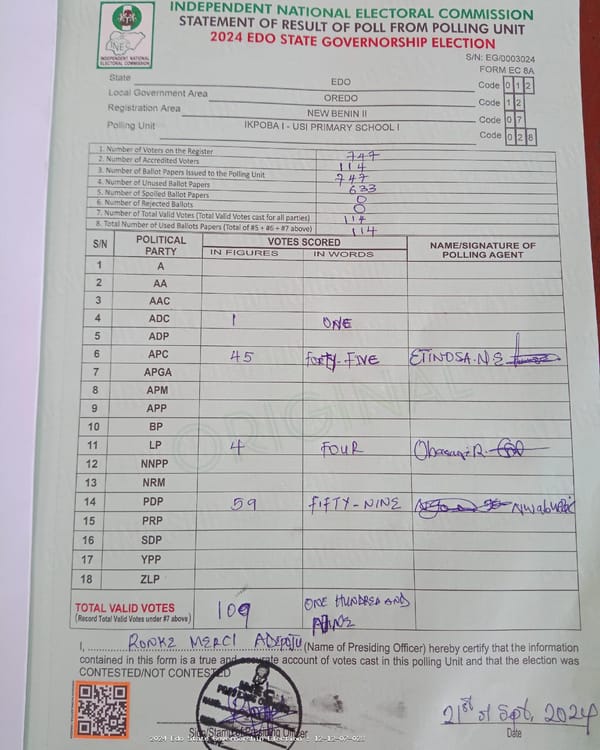 INDEPENDENT NATIONAL ELECTORAL COMMISSION
STATEMENT OF RESULT OF POLL FROM POLLING UNIT
2024 EDO STATE GOVERNORSHIP ELECTION
INEC
INDEPENDENT NATIONAL
ELECTORAL COMMISSION
S/N: EG/0003024
FORM EC 8A
State EDO Code 0 1 2
Local Government Area OREDO Code 1 2
Registration Area NEW BENIN II Code 0 7
Polling Unit IKPOBA I - USI PRIMARY SCHOOL I Code 0 2 8
1. Number of Voters on the Register 747
2. Number of Accredited Voters 114
3. Number of Ballot Papers Issued to the Polling Unit 747
4. Number of Unused Ballot Papers 633
5. Number of Spoiled Ballot Papers 0
6. Number of Rejected Ballots
7. Number of Total Valid Votes (Total Valid Votes cast for all parties) 114
8. Total Number of Used Ballots Papers (Total of #5 + #6 + #7 above) 114
S/N POLITICAL PARTY VOTES SCORED NAME/SIGNATURE OF POLLING AGENT
IN FIGURES IN WORDS
1 A
2 AA
3 AAC
4 ADC 1 ONE
5 ADP
6 APC 45 FORTY-FIVE ETINOSA.N.E
7 APGA
8 APM
9 APP
10 BP
11 LP 4 FOUR
12 NNPP
13 NRM
14 PDP 59 FIFTY-NINE
15 PRP
16 SDP
17 YPP
18 ZLP
ORIGINAL
TOTAL VALID VOTES 109 ONE HUNDRED AND
(Record Total Valid Votes under #7 above) NINE
I, RONKE MERCI ADEPOJU (Name of Presiding Officer) hereby certify that the information
contained in this form is a true and accurate account of votes cast in this polling Unit and that the election was
CONTESTED/NOT CONTESTED
21st of Sept, 2024
Officer
Date
2024 Edo State Governorship Election - 12-12-07-028